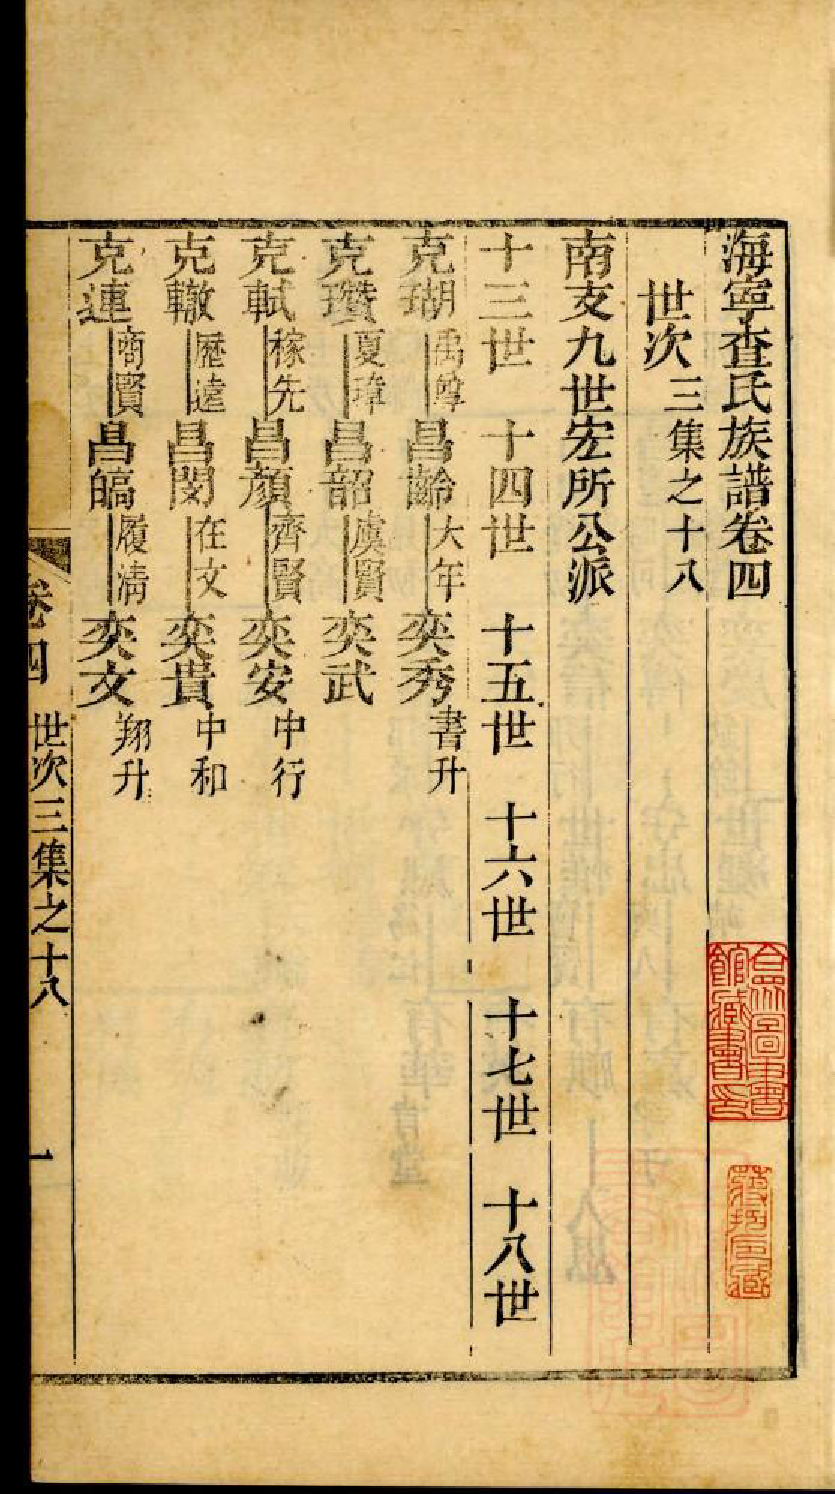 海寧查氏族譜卷四
世次三集之十八
南支九世宏所公派
十三世 十四世 十五世 十六世 十七世 十八世
克瑚 禹尊 昌齡 大年 奕秀 書升
克瓚 夏瑋 昌韶 虞賢 奕武
克軾 稼先 昌顏 齊賢 奕安 中行
克轍 歷遠 昌閔 在文 奕貴 中和
克連 商賢 昌皜 履淸 奕文 翔升
卷四 世次三集之十八 一
合眾圖書館藏書印